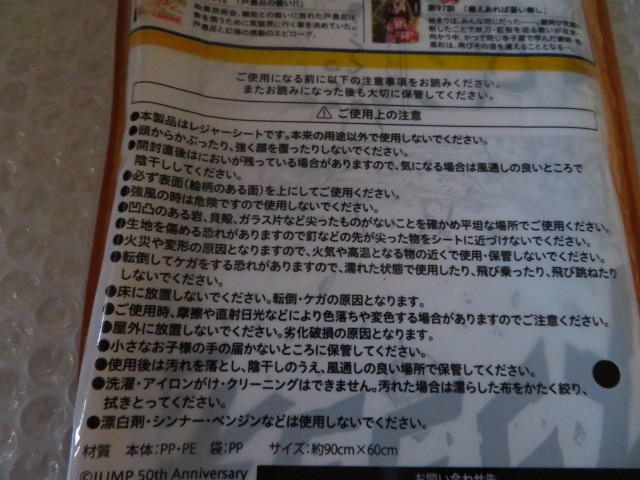 「戸愚呂の償い!!」
ご使用になる前に以下の注意事項をお読みください。
またお読みになった後も大切に保管してください。
⚠ ご使用上の注意
●本製品はレジャーシートです。本来の用途以外で使用しないでください。
●頭からかぶったり、強く顔を覆ったりしないでください。
●開封直後はにおいが残っている場合がありますので、気になる場合は風通しの良いところで
陰干ししてください。
●必ず表面(絵柄のある面)を上にしてご使用ください。
●強風の時は危険ですので使用しないでください。
●凹凸のある岩、貝殻、ガラス片など尖ったものがないことを確かめ平坦な場所でご使用ください。
●生地を傷める恐れがありますので釘などの先が尖った物をシートに近づけないでください。
●火災や変形の原因となりますので、火気や高温となる物の近くで使用・保管しないでください。
●転倒してケガをする恐れがありますので、濡れた状態で使用したり、飛び乗ったり、飛び跳ねたり
しないでください。
●床に放置しないでください。転倒・ケガの原因となります。
●ご使用時、摩擦や直射日光などにより色落ちや変色する場合がありますのでご注意ください。
●屋外に放置しないでください。劣化破損の原因となります。
●小さなお子様の手の届かないところに保管してください。
●使用後は汚れを落とし、陰干しのうえ、風通しの良い場所で保管してください。
●洗濯・アイロンがけ・クリーニングはできません。汚れた場合は濡らした布をかたく絞り、
拭きとってください。
●漂白剤・シンナー・ベンジンなどは使用しないでください。
材質 本体:PP・PE 袋:PP サイズ:約90cm×60cm
©JUMP 50th Anniversary
お問い合わせ先